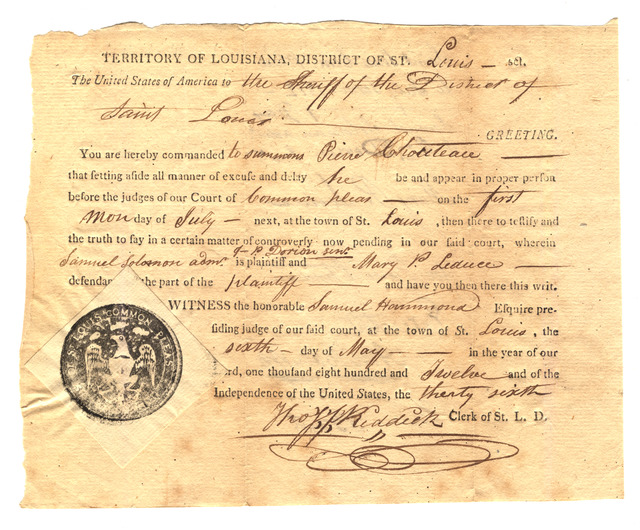 TERRITORY OF LOUISIANA, DISTRICT OF ST. Louis — sct.
The United States of America to the Sheriff of the District of
Saint Louis
GREETING.
You are hereby commanded to summons Pierre Chouteau
that setting aside all manner of excuse and delay he be and appear in proper person
before the judges of our Court of Common pleas — on the first
Mon day of July — next, at the town of St. Louis, then there to testify and
the truth to say in a certain matter of controversy now pending in our said court, wherein
of P. Dorion senr.
Samuel Solomon admr. is plaintiff and Mary P. Leduc
defendant the part of the plaintiff — and have you then there this writ.
WITNESS the honorable Samuel Hammond Esquire pre-
siding judge of our said court, at the town of St. Louis, the
sixth — day of May — in the year of our
ord, one thousand eight hundred and Twelve and of the
Independence of the United States, the thirty sixth
Thos. F. Riddick Clerk of St. L. D.
ST LOUIS COMMON PLEAS